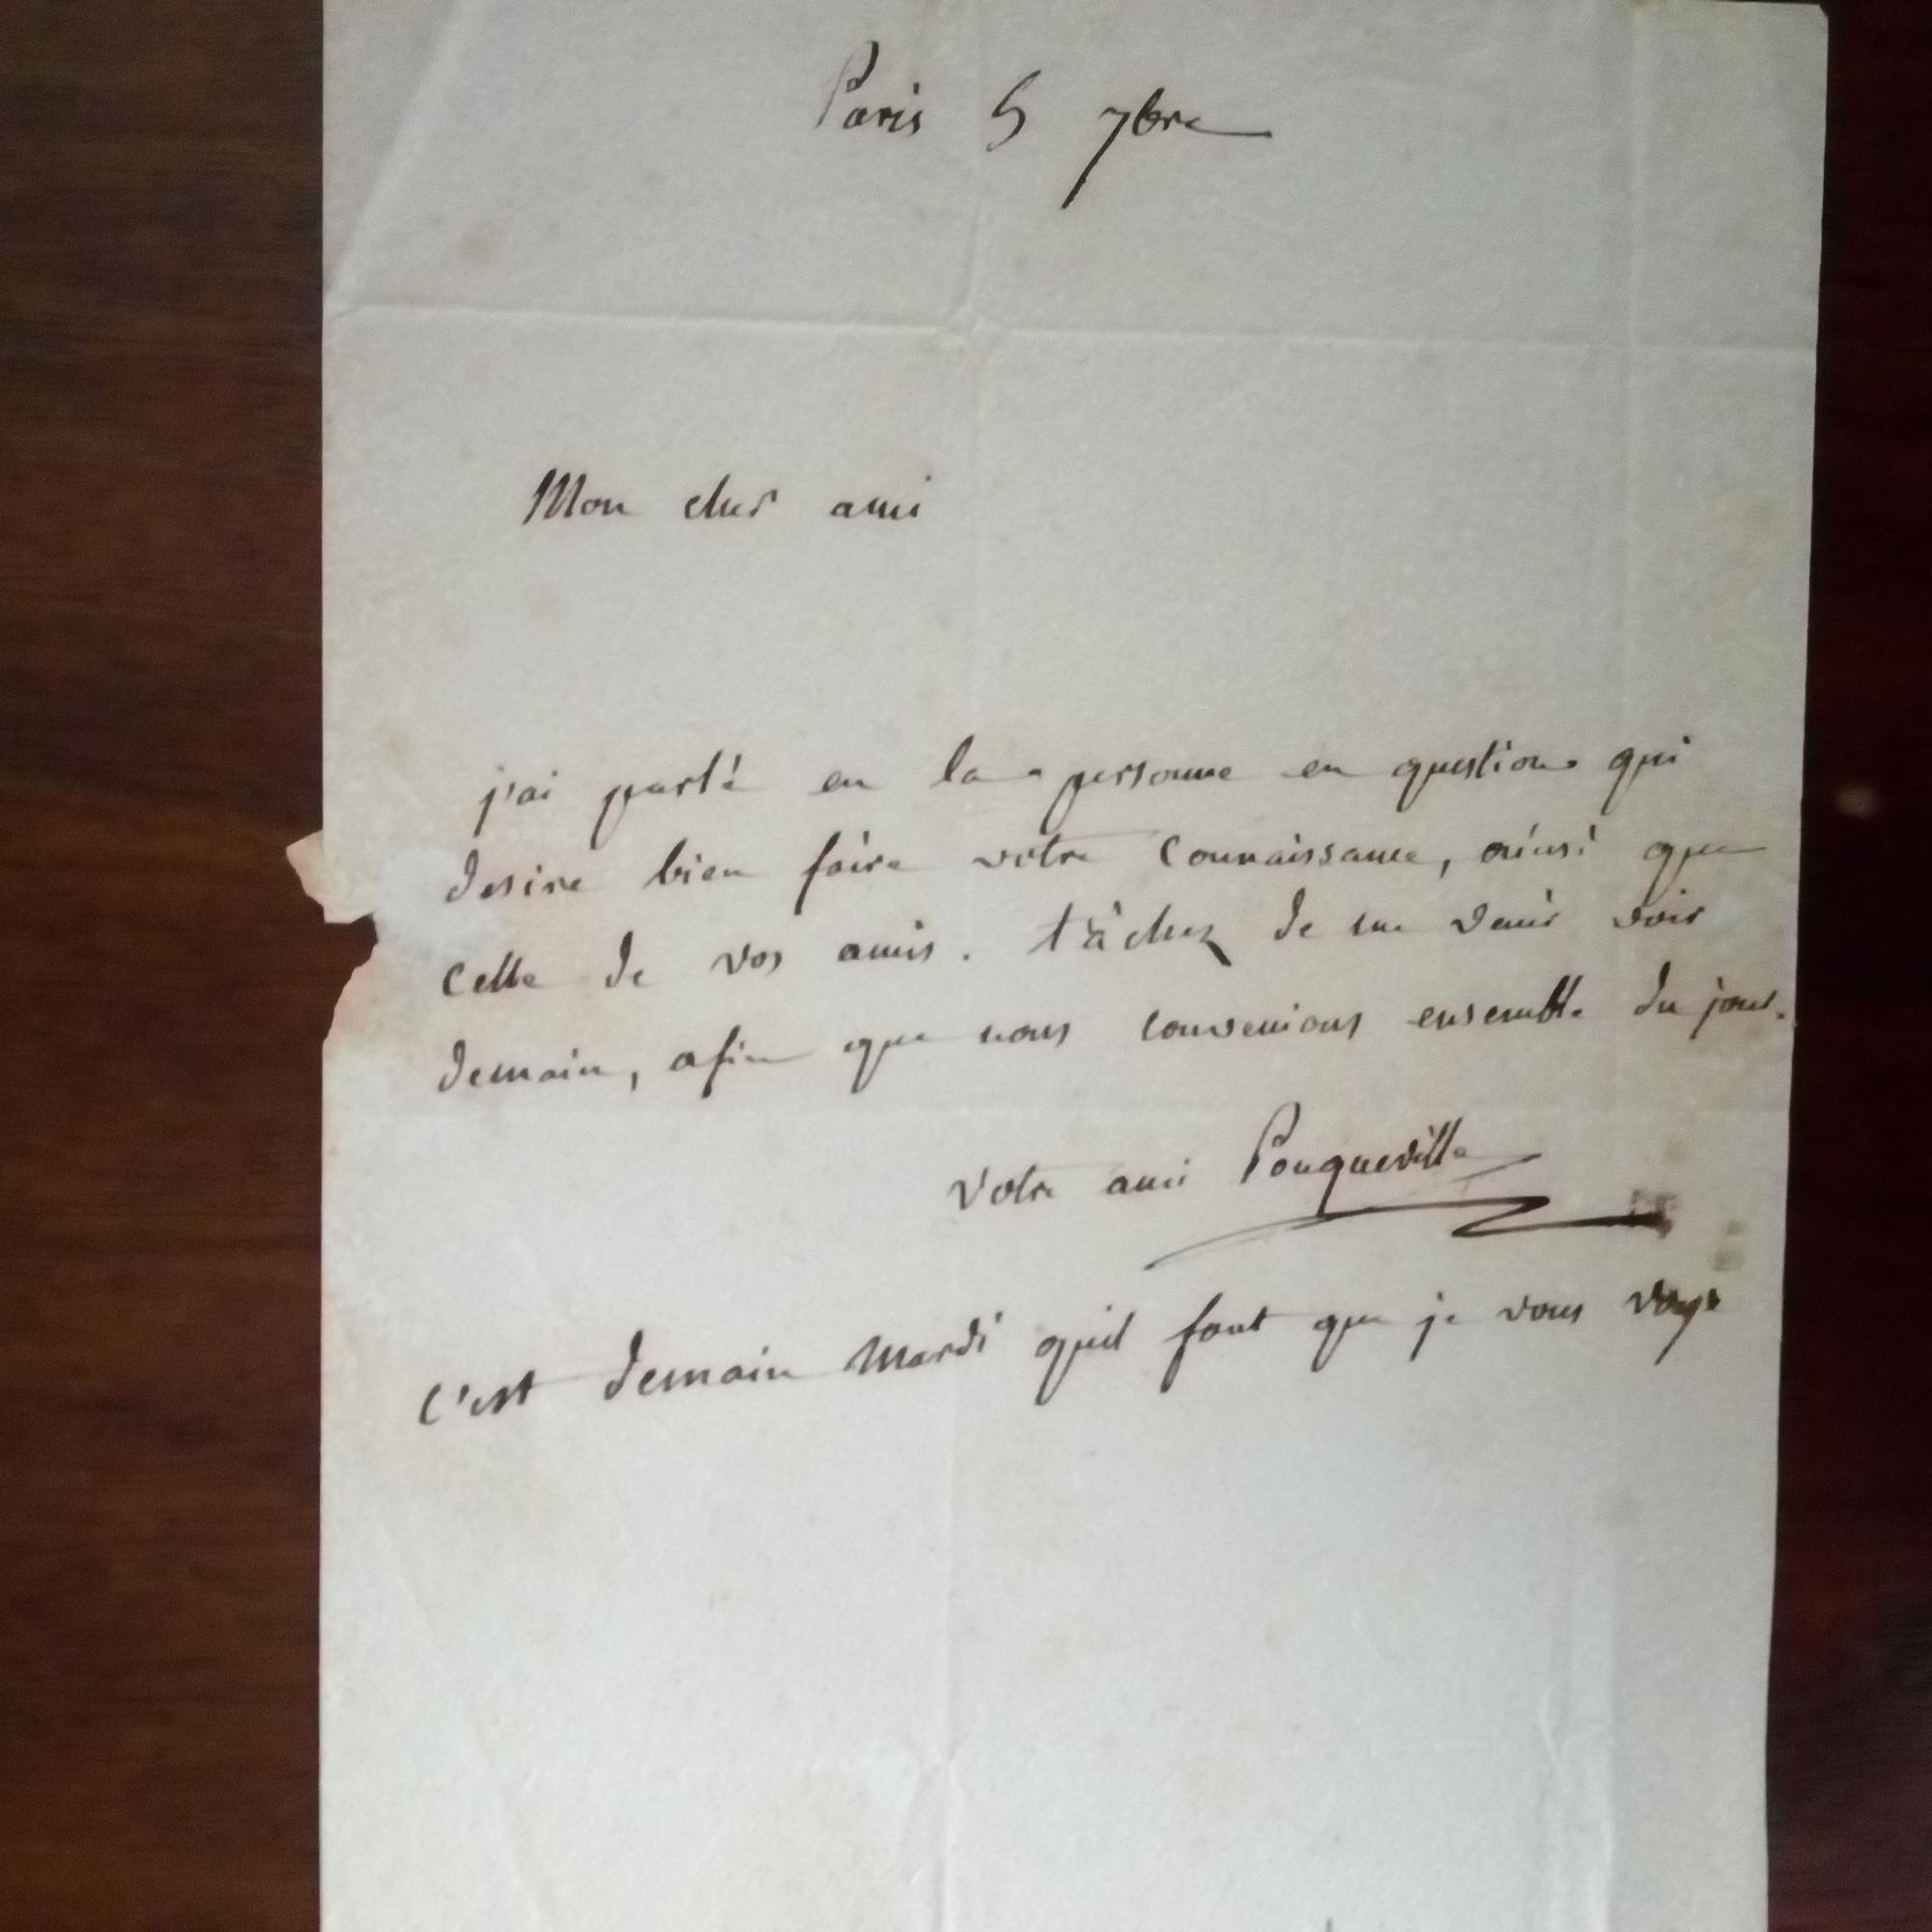 Paris 5 7bre
Mon cher ami
j'ai parlé en la personne en question qui
desire bien faire votre connaissance, ainsi que
celle de vos amis. tâchez de me venir voir
demain, afin que nous convenions ensemble du jour.
votre ami Pouqueville
c'est demain Mardi quil faut que je vous voye